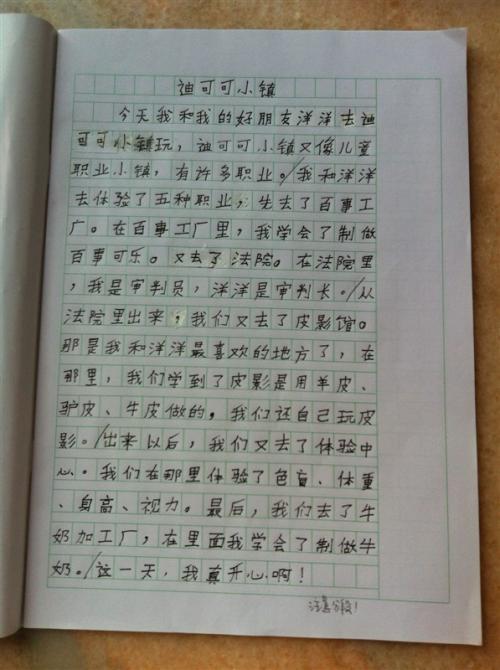 迪可可小镇
今天我和我的好朋友洋洋去迪
可可小镇玩，迪可可小镇又像儿童
职业小镇，有许多职业。/我和洋洋
去体验了五种职业，先去了百事工
厂。在百事工厂里，我学会了制做
百事可乐。又去了法院。在法院里
，我是审判员，洋洋是审判长。/从
法院里出来，我们又去了皮影馆。
那是我和洋洋最喜欢的地方了，在
那里，我们学到了皮影是用羊皮、
驴皮、牛皮做的，我们还自己玩皮
影。/出来以后，我们又去了体验中
心。我们在那里体验了色盲、体重
、身高、视力。最后，我们去了牛
奶加工厂，在里面我学会了制做牛
奶。/这一天，我真开心啊！
注意分段！